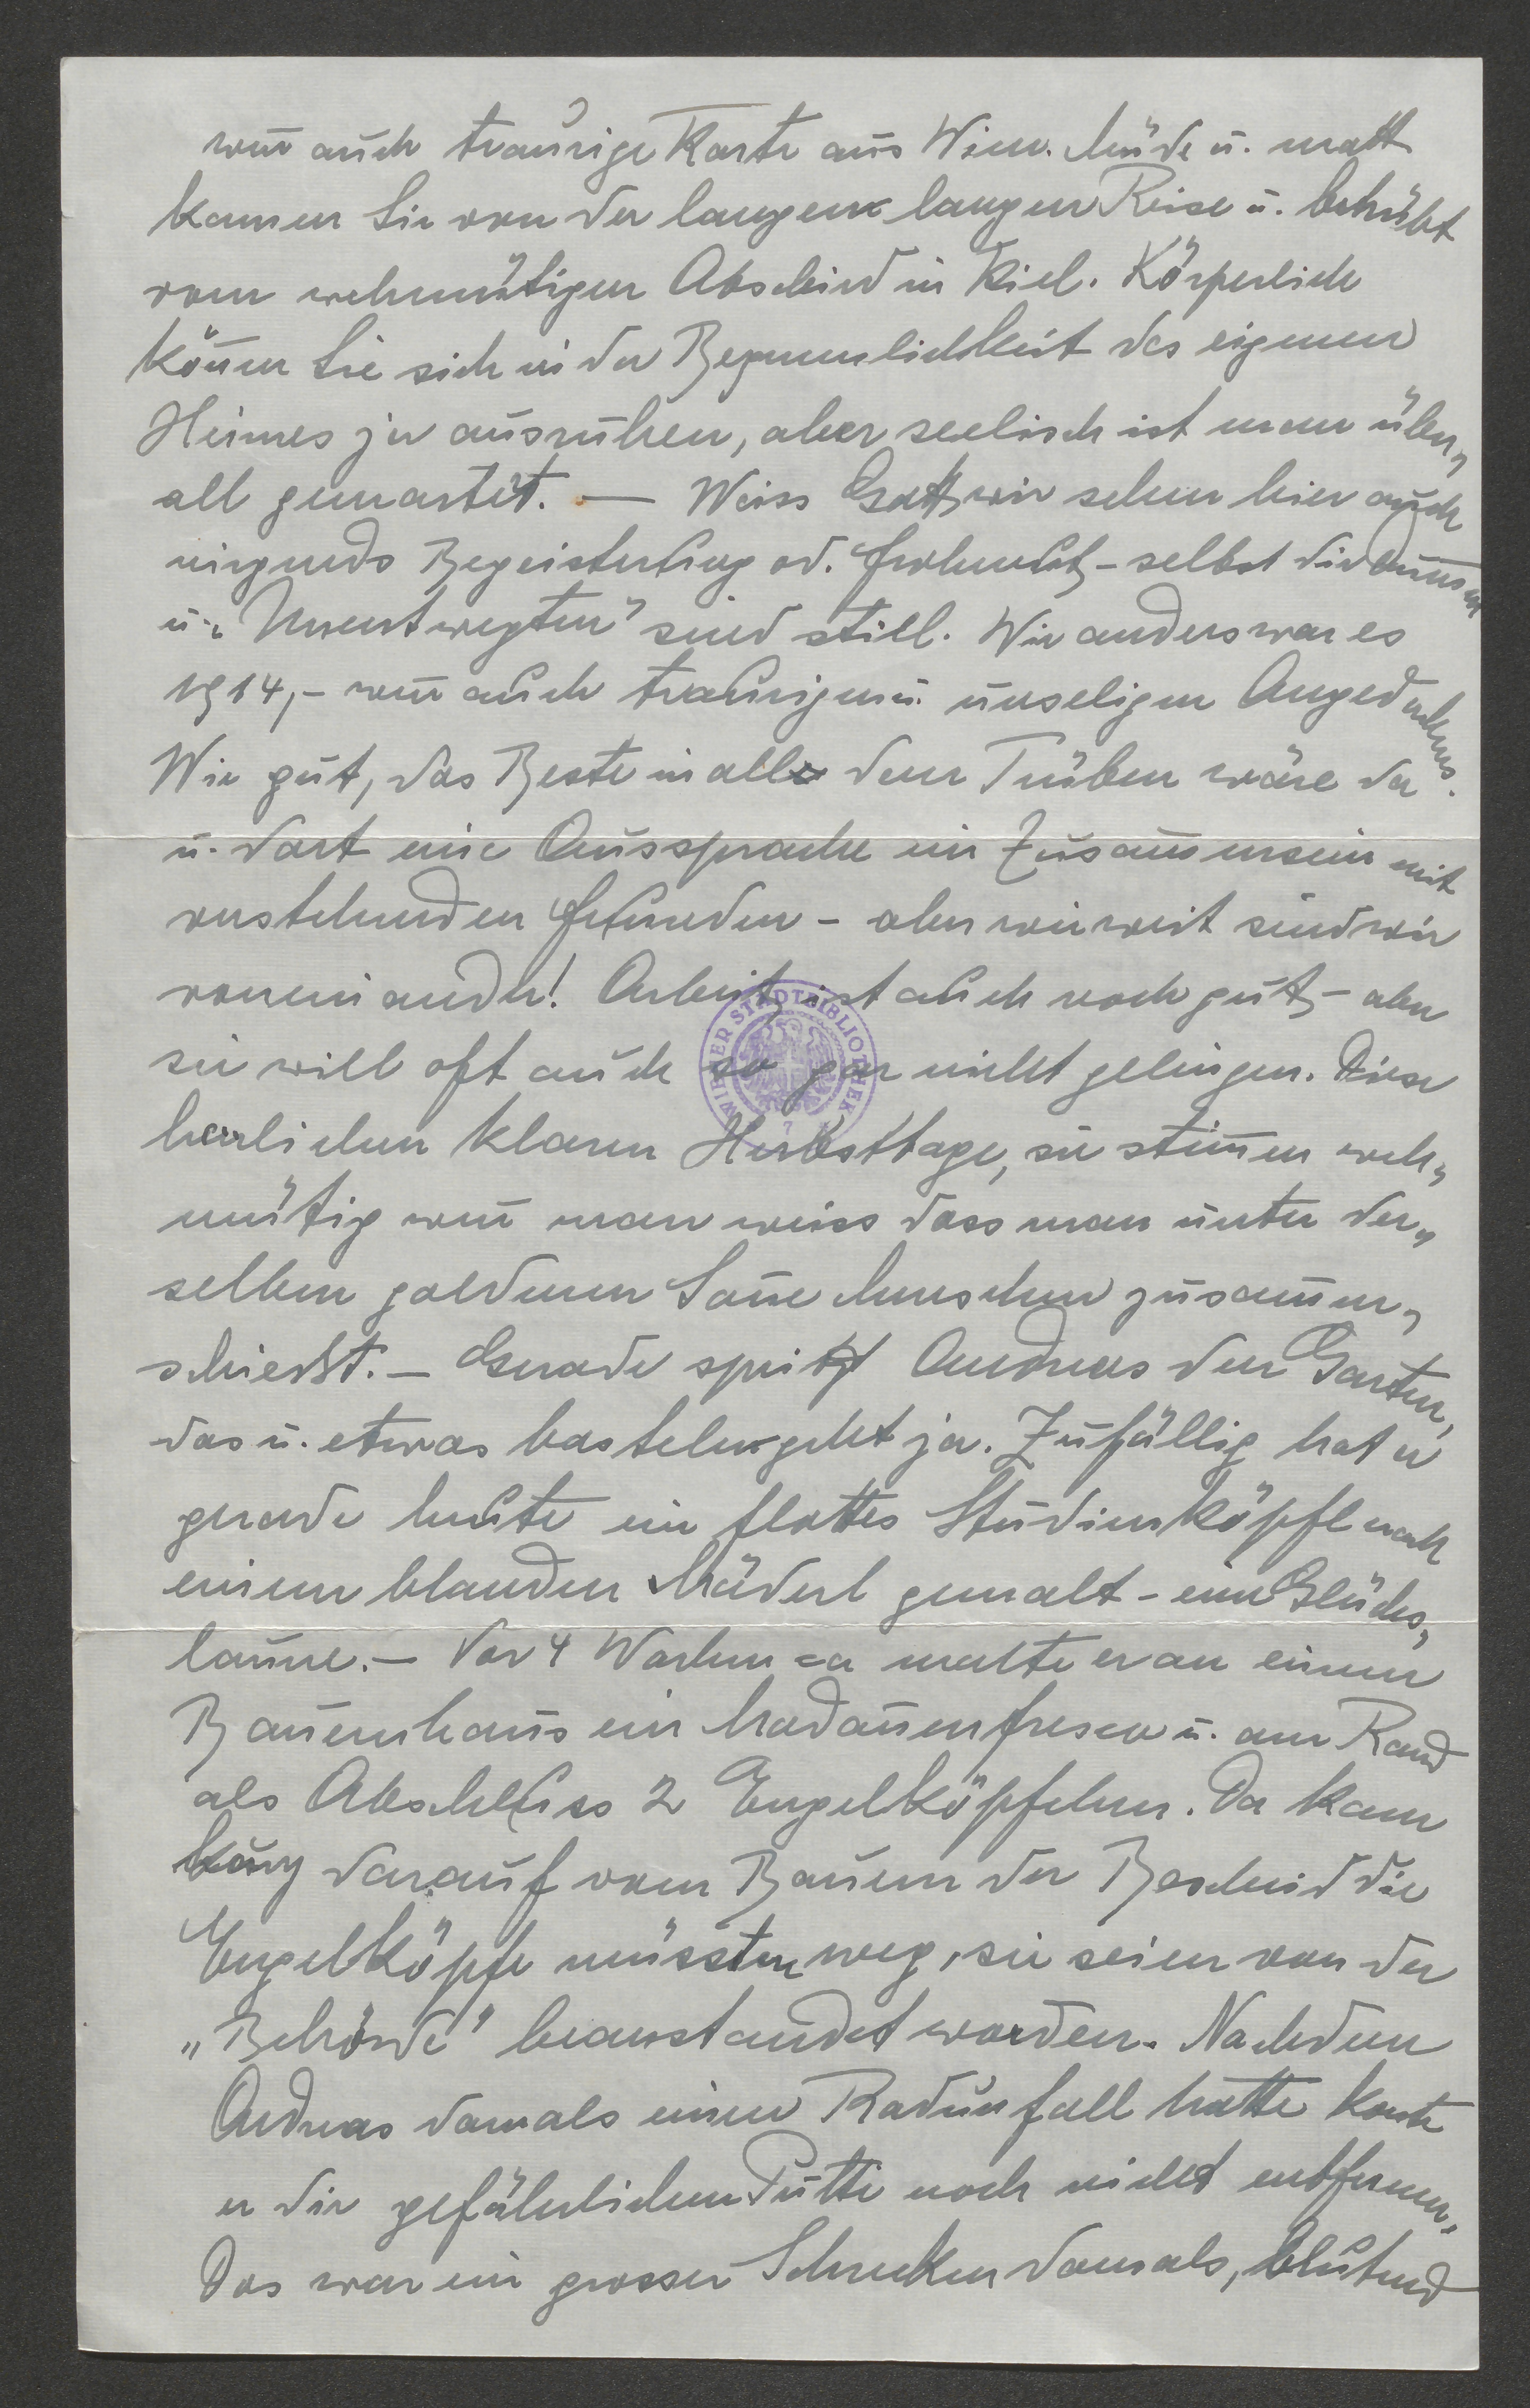 weñ auch traurige Karte aus Wien. Müde u. matt
kamen Sie von der langen langen Reise u. betrübt
vom wehmütigen Abschied in Kiel. Körperlich
köñen Sie sich in der Bequemlichkeit des eigenen
Heimes ja ausruhen, aber seelisch ist man über„
all gemartet. — Weiss Gott, wir sehen hier auch
nirgends Begeisterung od. Frohmut, – selbst die
u. „Unentwegten" sind still. Wie anders war es
1914, – weñ auch traurigen u. unseligen Angedenkens.
Wie gut, das Beste in all dem Trüben wäre da
u. dort eine Aussprache ein Zusam̄ensein mit
verstehenden Freunden – aber wie weit sind wir
voneinander! Arbeit, ist auch noch gut, – aber
sie will oft auch so gar nicht gelingen. Diese
herrlichen klaren Herbsttage, sie stim̄en weh„
mütig weñ man weiss dass man unter der„
selben goldenen Soñe Menschen zusam̄en„
schiesst. – Gerade spritzt Andreas den Garten,
das u. etwas basteln geht ja. Zufällig hat er
gerade heute ein flottes Studienköpfl nach
einem blonden Mäderl gemalt – eine Glücks„
laune. – Vor 4 Wochen ca malte er an einem
Bauernhaus ein Madoñenfresco u. am Rand
als Abschluss 2 Engelköpfchen. Da kam
kurz darauf vom Bauern der Bescheid die
Engelköpfe müssten weg, sie seien von der
„Behörde" beanstandet worden. Nachdem
Andreas damals einen Radunfall hatte konte
er die gefährlichen Putti noch nicht entfernen.
Das war ein grosser Schrecken damals, blutend
WIENER STADTBIBLIOTHEK